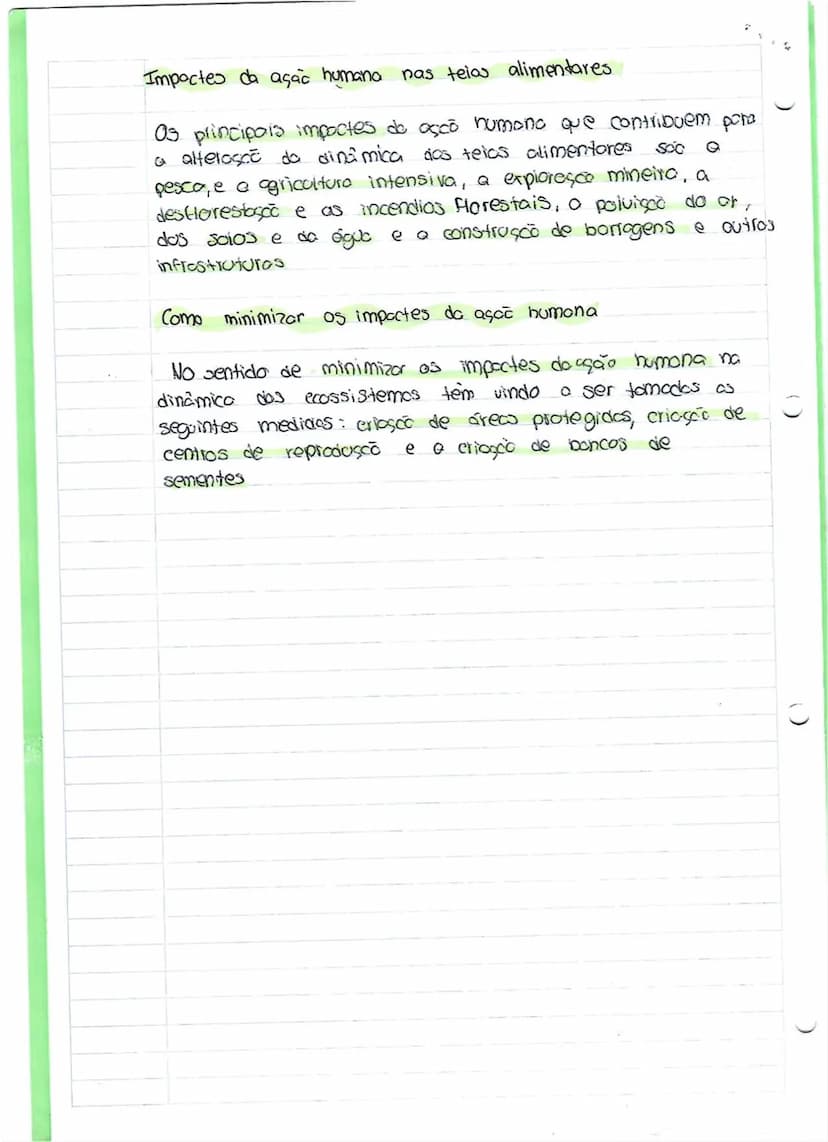 Impactes da ação humana nas teias alimentares
Os principais impactes da ação humana que contribuem para
a alteração da dinâmica das teias alimentares são a
pesca, e a agricultura intensiva, a exploração mineira, a
desflorestação e as incendios florestais, a poluição do ar,
dos solos e da água e a construção de barragens e outras
infrastruturas
Como minimizar os impactes da ação humana
No sentido de minimizar os impactes da ação humana na
dinâmica dos ecossistemas têm vindo a ser tomadas as
seguintes medidas: criação de áreas protegidas, criação de
centros de reprodução e a criação de bancos de
sementes